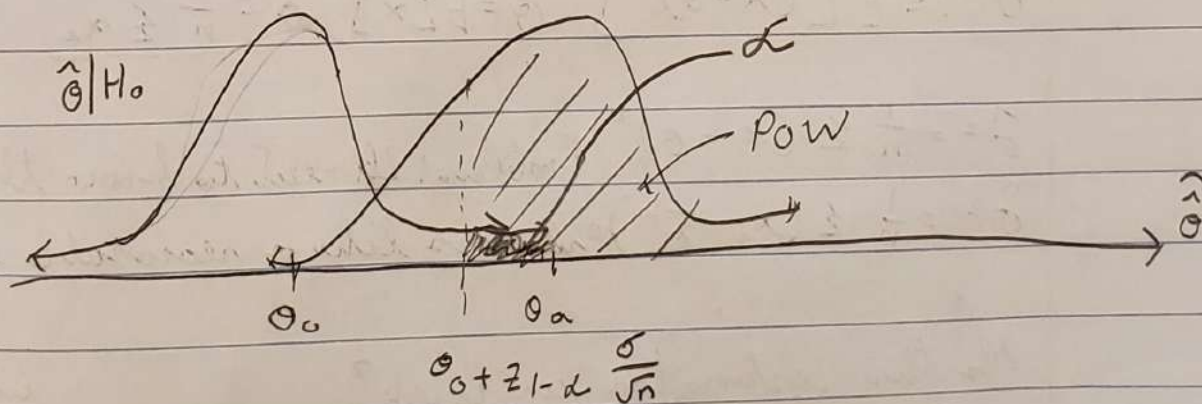 α
θ̂|H₀
POW
θ̂
θ₀
θₐ
θ₀ + z₁₋α σ/√n